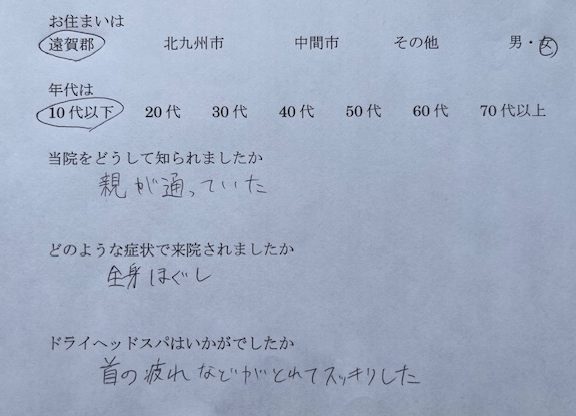 お住まいは
遠賀郡 北九州市 中間市 その他 男・女
年代は
10代以下 20代 30代 40代 50代 60代 70代以上
当院をどうして知られましたか
親が通っていた
どのような症状で来院されましたか
全身ほぐし
ドライヘッドスパはいかがでしたか
首の疲れなどがとれてスッキリした